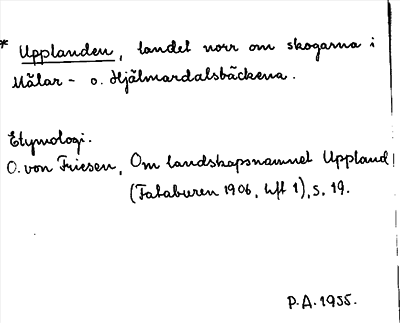 * Upplanden, landet norr om skogarna i
Mälar- o. Hjälmardalsbäckena.
Etymologi.
O. von Friesen, Om landskapsnamnet Uppland
(Fataburen 1906, hft 1), s. 19.
P.A. 1935.